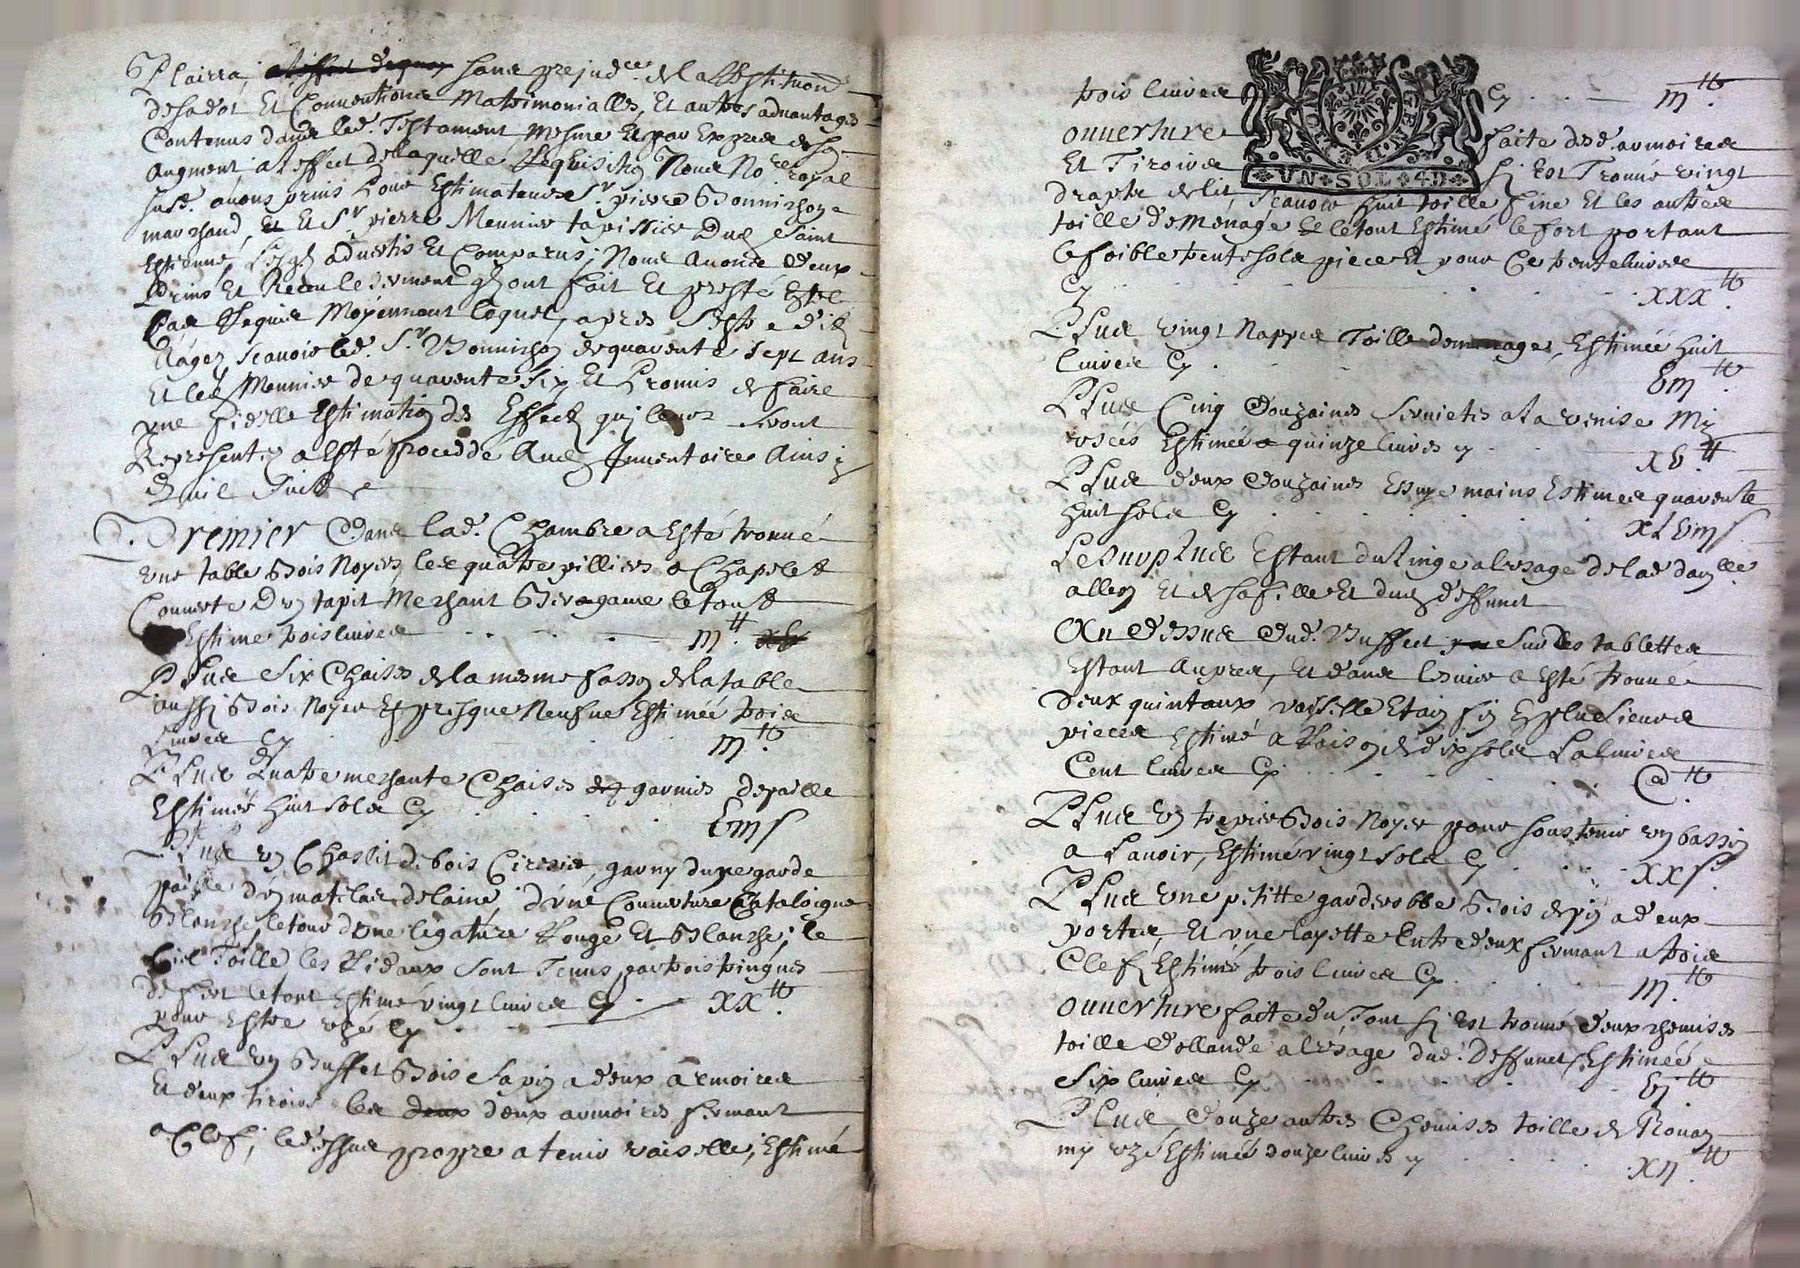 Plairra, sans prejud.ce de la Restituon
de sa dot Et Conventions Matrimonialles, Et autres advantages
Contenus dans led. Testament Mesme Et par Exprez de son
augment, a leffect de laquelle Requision Nous No.re royal
susd. avons prins pour Estimateurs Sr. pierre Bonnisson
marchand, Et Sr. pierre Meunier tapissier Dud. Saint
Estienne Lesqls advertis Et Comparus; Nous avons d'eux
prins Et Receu le serment qls ont fait Et presté Entel
Cas Requis Moyennant Loquel, apres S'estre dits
Eagez scavoir led. Sr. Bonnisson de quarente sept ans
Et led. Meunier de quarente six Et Promis de faire
une fidelle Estimation des Effects qui leur seront
Representez a Esté procedde Aud. Inventaire Ainsy
qu'il suict
Premier dans lad. Chambre a Esté trouvé
une table Bois Noyer, les quatre pilliers a Chapelet
Couverte D'un tapis Meschant Bergame le tout
Estimé trois livres III.tt
Plus Six Chaises de la mesme fasson de la table
aussi Bois Noyer Et presque Neufve Estimée trois
livres Cy III.tt
Plus Quatre meschante Chaises garnies de paille
Estimée huit sols Cy VIIIs
Plus un Chaslit de bois Cirisier, garny d'une garde
paille d'un matelas de laine d'une Couverture Cataloigne
Blanche, le tour d'une ligature Rouge Et Blanche, le
Ciel Toille les Rideaux Sont Tenus par trois tringues
de fert le tout Estimé vingt livres Cy XX.tt
pour Estre uzé Cy
Plus un Buffet Bois Sapin a deux armoires
Et deux tiroirs les deux armoires fermant
a Clef, le dessus propre a tenir vaisselle, Estimé
trois livres Cy III.tt
UN SOL 4D
ouverture faite desd. armoires
Et Tiroirs Sy est Trouvé vingt
draps de lit, Scavoir huit toille fine Et les autres
toille de Menage le tout Estimé le fort portant
le foible trente sols piece Et pour Ce trente livres
Cy XXX.tt
Plus vingt Nappes Toille de menage, Estimée huit
livres Cy VIII.tt
Plus Cinq douzaines Serviettes a la venise My
uzées Estimées quinze livres cy XV.tt
Plus deux douzaines Essuye mains Estimes quarente
huit sols Cy XLVIIIs
Le surplus Estant du Linge a lusage de lad. dam.lle
allen Et de sa fille Et dud. deffunct
Au dessus dud. Buffect sur les tablettes
Estant Aupres, Et dans Icelluy a Esté trouvé
deux quintaux vayselle Etain fin En plusieurs
pieces Estimé a Raison de dix sols La livre
Cent livres Cy C.tt
Plus un trepier Bois Noyer pour soustenir un bassin
a Lavoir, Estimé vingt sols Cy XXs
Plus une petitte garderobbe Bois de pin a deux
portes, Et une layette Entredeux fermant a trois
Clef, Estimé trois livres Cy III.tt
ouverture faite du Tout Sy est trouvé deux chemises
toille d'ollande a lusage dud. Deffunct, Estimée
Six livres Cy VI.tt
Plus, douze autres Chemises toille de Rouan
my uzé Estimée douze livres cy XII.tt